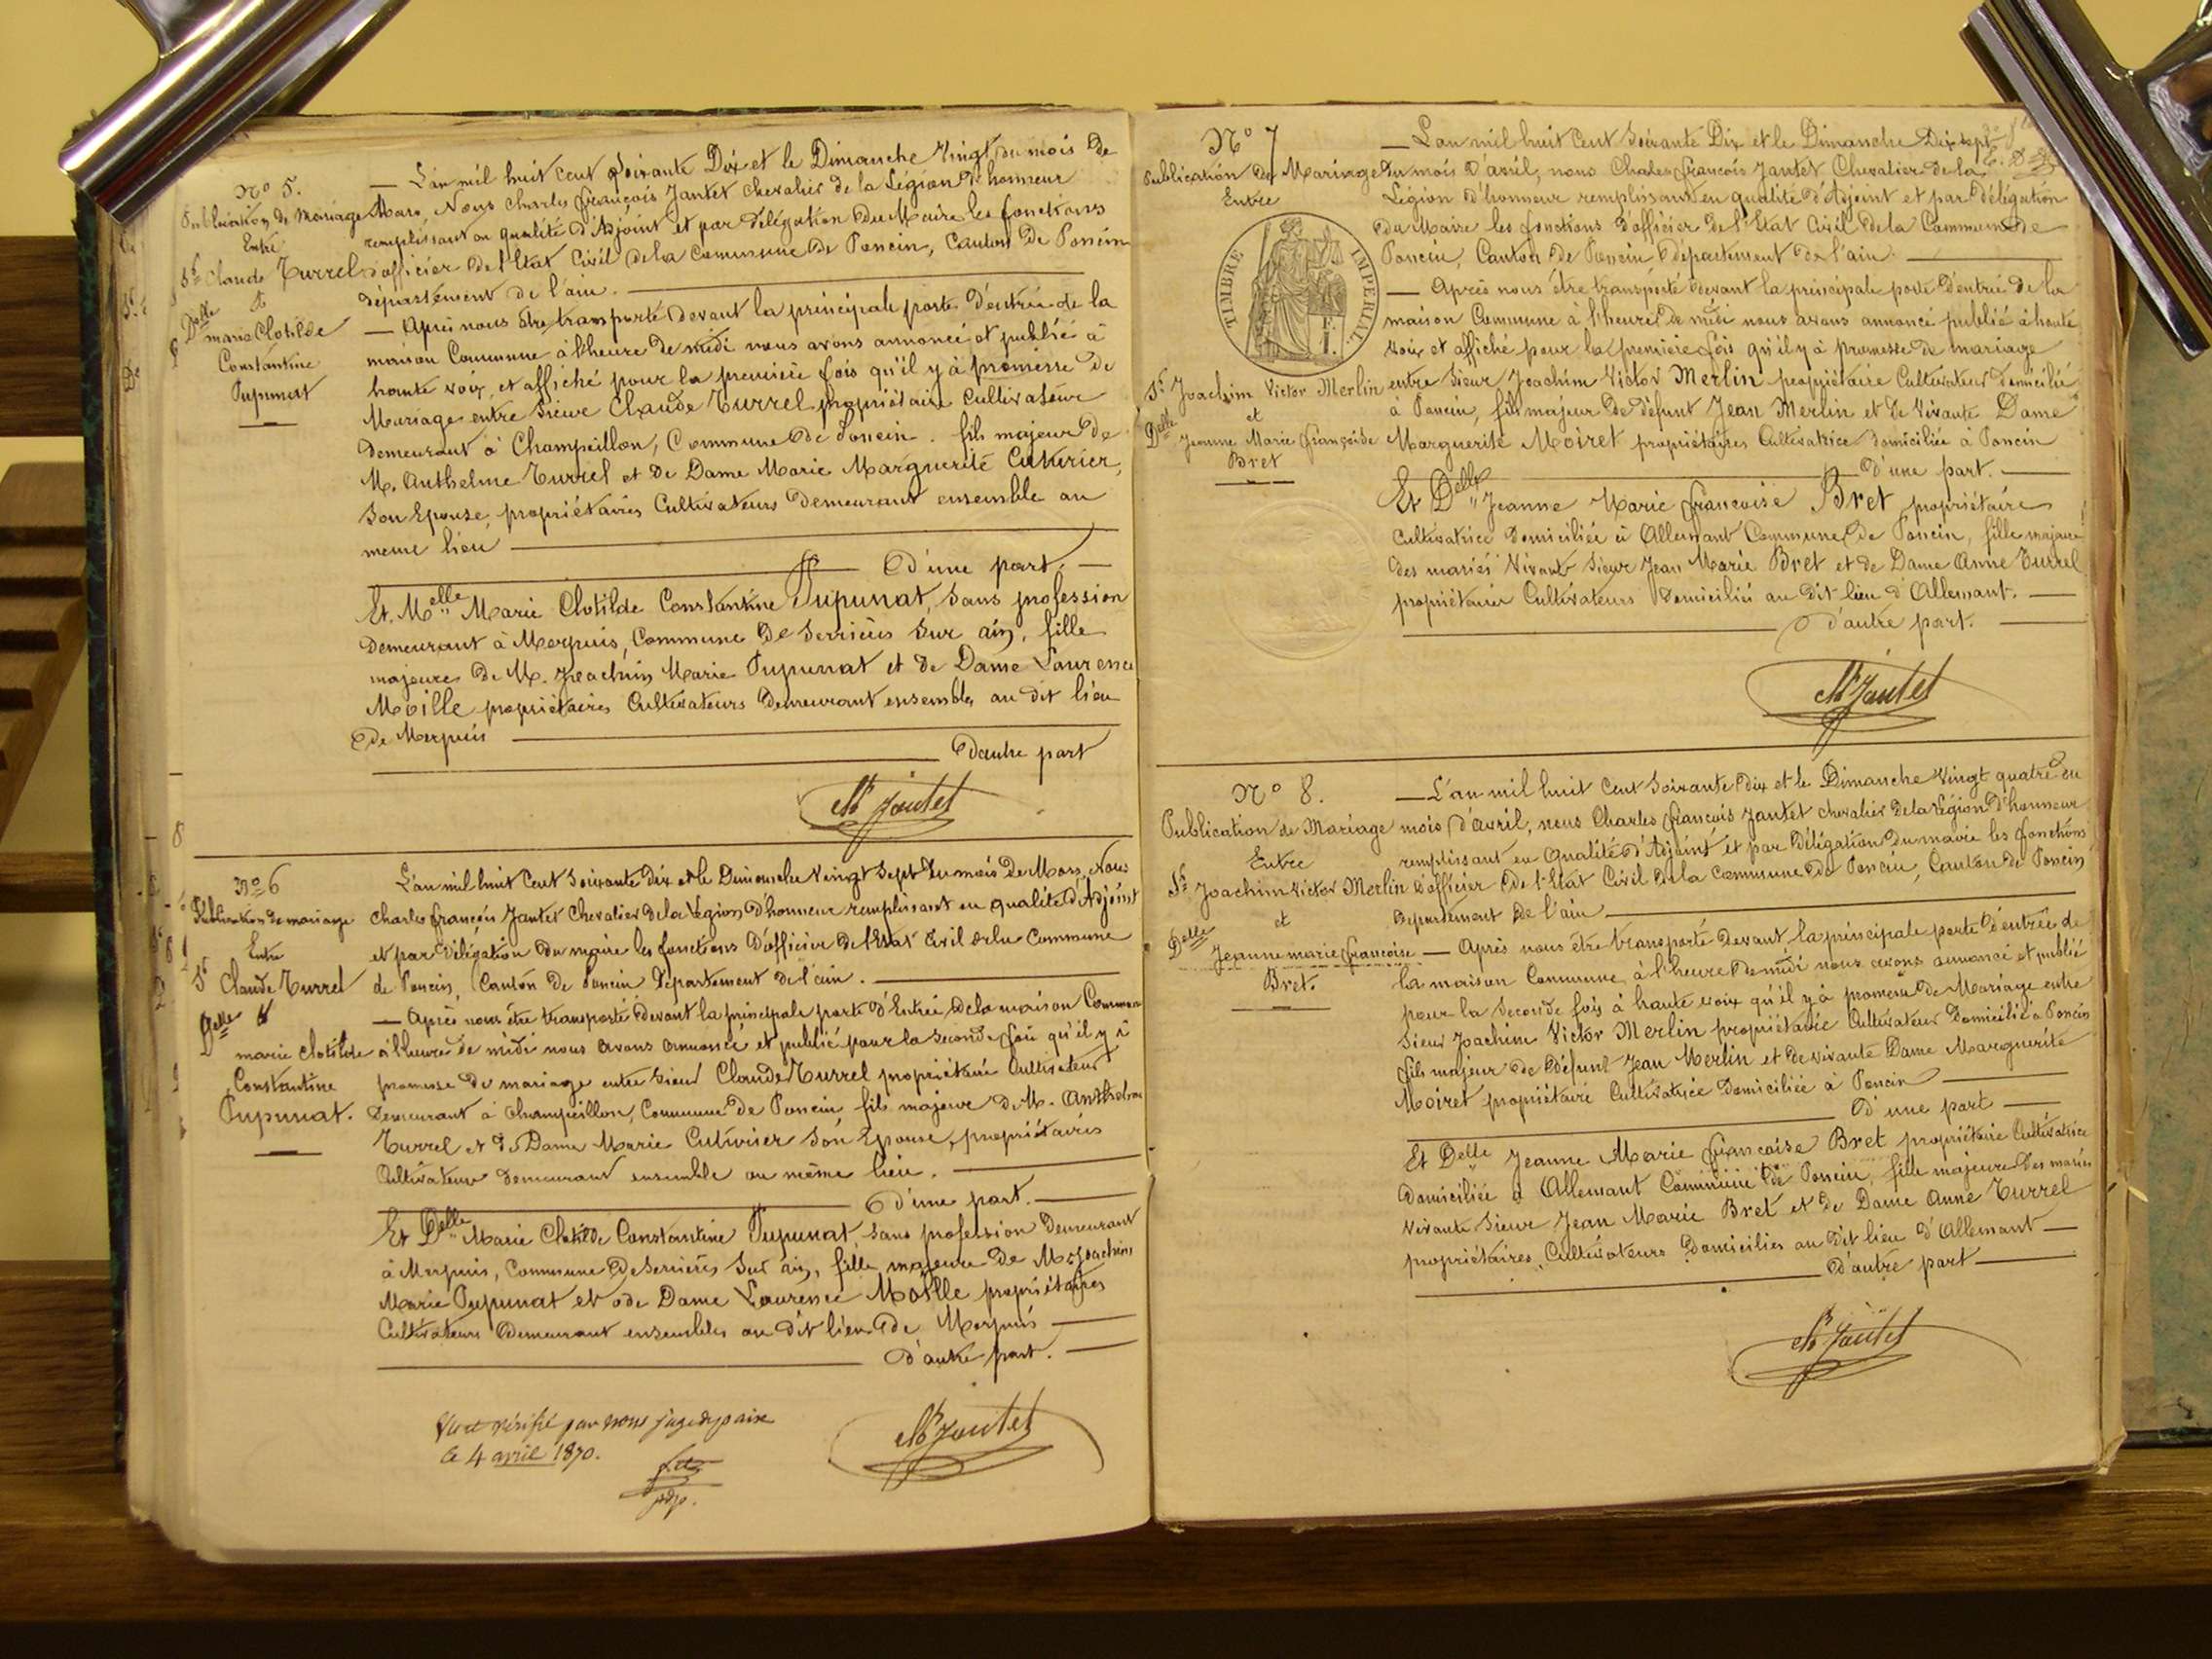 N° 5.
Publication de Mariage
Entre
Sr Claude Turrel
et
Delle
marie Clotilde
Constantine
Pupunat
— L'an mil huit cent soixante Dix et le Dimanche Vingt du mois de
Mars, Nous Charles françois Jantet chevalier de la Légion d'honneur
remplissant en qualité d'Adjoint et par délégation du Maire les fonctions
d'officier de l'Etat Civil de la Commune de Poncin, Canton de Poncin
département de l'ain.
— Après nous être transporté devant la principale porte d'entrée de la
maison Commune à l'heure de midi nous avons annoncé et publié à
haute voix, et affiché pour la première fois qu'il y à promesse de
Mariage entre Sieur Claude Turrel propriétaire Cultivateur
demeurant à Champeillon, Commune de Poncin. fils majeur de
M. Anthelme Turrel et de Dame Marie Marguerite Cuturier,
son Epouse, propriétaires Cultivateurs demeurant ensemble au
meme lieu
D'une part. —
Et Melle Marie Clotilde Constantine Pupunat, Sans profession
demeurant à Merpuis, Commune de Serrières Sur ain, fille
majeure de M. Joachim Marie Pupunat et de Dame Laurence
Moille propriétaires Cultivateurs demeurant ensemble au dit lieu
de Merpuis
D'autre part
Ch Jantet
N° 6
Publication de mariage
Entre
Sr Claude Turrel
et
Delle
marie Clotilde
Constantine
Pupunat.
L'an mil huit Cent Soixante dix et le Dimanche Vingt Sept du mois De Mars, Nous
Charles françois Jantet Chevalier de la Légion d'honneur remplissant en qualité d'Adjoint
et par délégation du maire les fonctions d'officier de l'Etat Civil de la Commune
de Poncin, Canton de Poncin Département de l'ain.
— Après nous être transporté devant la principale porte d'Entrée de la maison Commune
à l'heure de midi nous avons annoncé et publié pour la seconde fois qu'il y à
promesse de mariage entre Sieur Claude Turrel propriétaire Cultivateur
Demeurant à Champeillon, Commune de Poncin fils majeur de M. Anthelme
Turrel et de Dame Marie Cuturier Son Epouse, propriétaires
Cultivateurs demeurant ensemble au même lieu.
D'une part.
Et Delle Marie Clotilde Constantine Pupunat, Sans profession demeurant
à Merpuis, Commune de Serrières Sur ain, fille majeure de M. Joachim
Marie Pupunat et de Dame Laurence Moille propriétaires
Cultivateurs demeurant ensembles au dit lieu de Merpuis
D'autre part.
Vu et vérifié par nous juge de paix
le 4 avril 1870.
Ch Jantet
N° 7
Publication de Mariage
Entre
TIMBRE IMPERIAL
Sr Joachim Victor Merlin
et
Delle
Jeanne Marie françoise
Bret
— L'an mil huit Cent Soixante Dix et le Dimanche Dix sept
du mois d'avril, nous Charles françois Jantet Chevalier de la
Légion d'honneur remplissant en qualité d'Adjoint et par délégation
du Maire les fonctions d'officier de l'Etat Civil de la Commune de
Poncin, Canton de Poncin département de l'ain.
— Après nous être transporté devant la principale porte d'entrée de la
maison Commune à l'heure de midi nous avons annoncé publié à haute
voix et affiché pour la première fois qu'il y à promesse de mariage
entre Sieur Joachim Victor Merlin propriétaire Cultivateur domicilié
à Poncin, fils majeur de défunt Jean Merlin et de Vivante Dame
Marguerite Moiret propriétaires Cultivatrice domiciliée à Poncin
D'une part.
Et Delle Jeanne Marie françoise Bret propriétaire
Cultivatrice domiciliée à Allemant Commune de Poncin, fille majeure
des mariés Vivants Sieur Jean Marie Bret et de Dame Anne Turrel
propriétaires Cultivateurs domiciliés au dit lieu d'Allemant.
D'autre part.
Ch Jantet
N° 8.
Publication de Mariage
Entre
Sr Joachim Victor Merlin
et
Delle
Jeanne marie françoise
Bret.
— L'an mil huit Cent Soixante dix et le Dimanche Vingt quatre du
mois d'avril, nous Charles françois Jantet chevalier de la Légion d'honneur
remplissant en qualité d'Adjoint et par délégation du maire les fonctions
d'officier de l'Etat Civil de la Commune de Poncin, Canton de Poncin
département de l'ain
— Après nous être transporté devant la principale porte d'entrée de
la maison Commune à l'heure de midi nous avons annoncé et publié
pour la seconde fois à haute voix qu'il y à promesse de Mariage entre
Sieur Joachim Victor Merlin propriétaire Cultivateur domicilié à Poncin
fils majeur de défunt Jean Merlin et de vivante Dame Marguerite
Moiret propriétaire Cultivatrice domiciliée à Poncin
D'une part
Et Delle Jeanne Marie françoise Bret propriétaire Cultivatrice
domiciliée à Allemant Commune de Poncin, fille majeure des mariés
Vivants Sieur Jean Marie Bret et de Dame Anne Turrel
propriétaires Cultivateurs domicilies au dit lieu d'Allemant
D'autre part
Ch Jantet